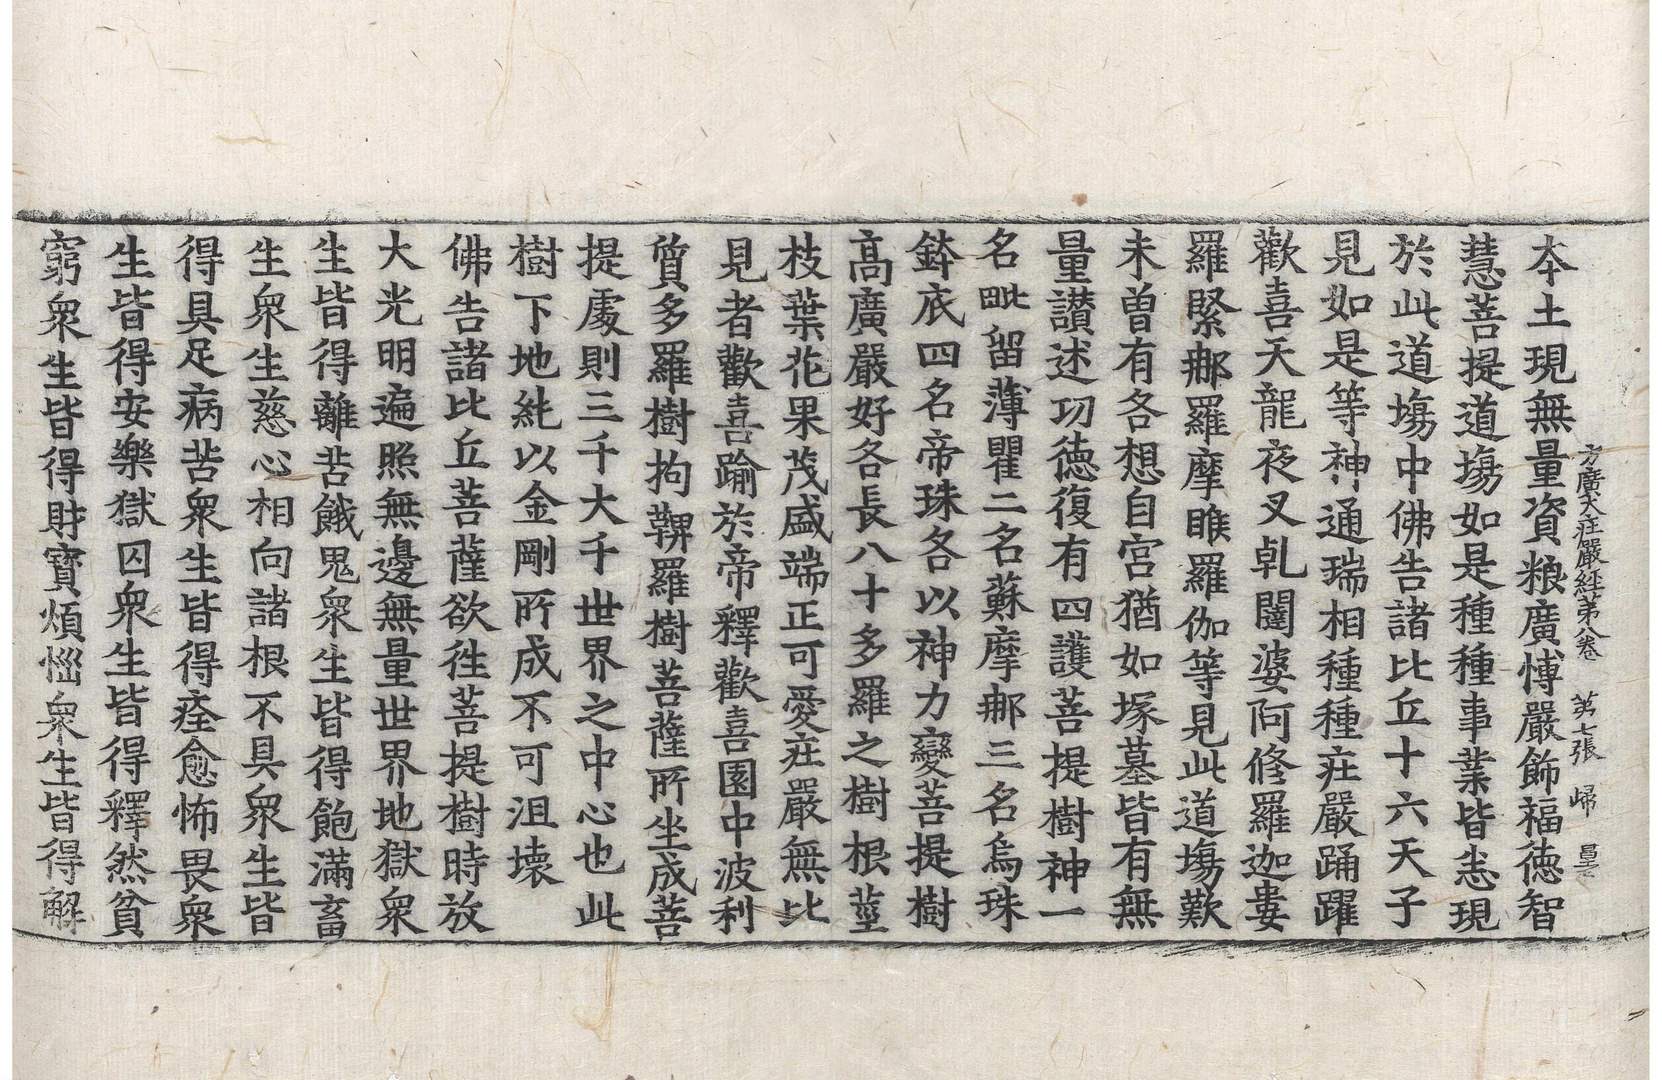 方廣大庄嚴經第八卷　第七張　歸
本土現無量資粮廣愽嚴飾福德智
慧菩提道塲如是種種事業皆悉現
於此道塲中佛告諸比丘十六天子
見如是等神通瑞相種種庄嚴踊躍
歡喜天龍夜叉乹闥婆阿修羅迦婁
羅緊那羅摩睺羅伽等見此道塲歎
未曾有各想自宮猶如塚墓皆有無
量讃述㓛德復有四護菩提樹神一
名毗留薄瞿二名蘇摩那三名烏珠
鉢底四名帝珠各以神力變菩提樹
髙廣嚴好各長八十多羅之樹根莖
枝葉花果茂盛端正可愛庄嚴無比
見者歡喜踰於帝釋歡喜園中波利
質多羅樹拘鞞羅樹菩薩所坐成菩
提處則三千大千世界之中心也此
樹下地純以金剛所成不可沮壊
佛告諸比丘菩薩欲往菩提樹時放
大光明遍照無邊無量世界地獄衆
生皆得離苦餓鬼衆生皆得飽滿畜
生衆生慈心相向諸根不具衆生皆
得具足病苦衆生皆得痊愈怖畏衆
生皆得安樂獄囚衆生皆得釋然貧
窮衆生皆得財寶煩惱衆生皆得解